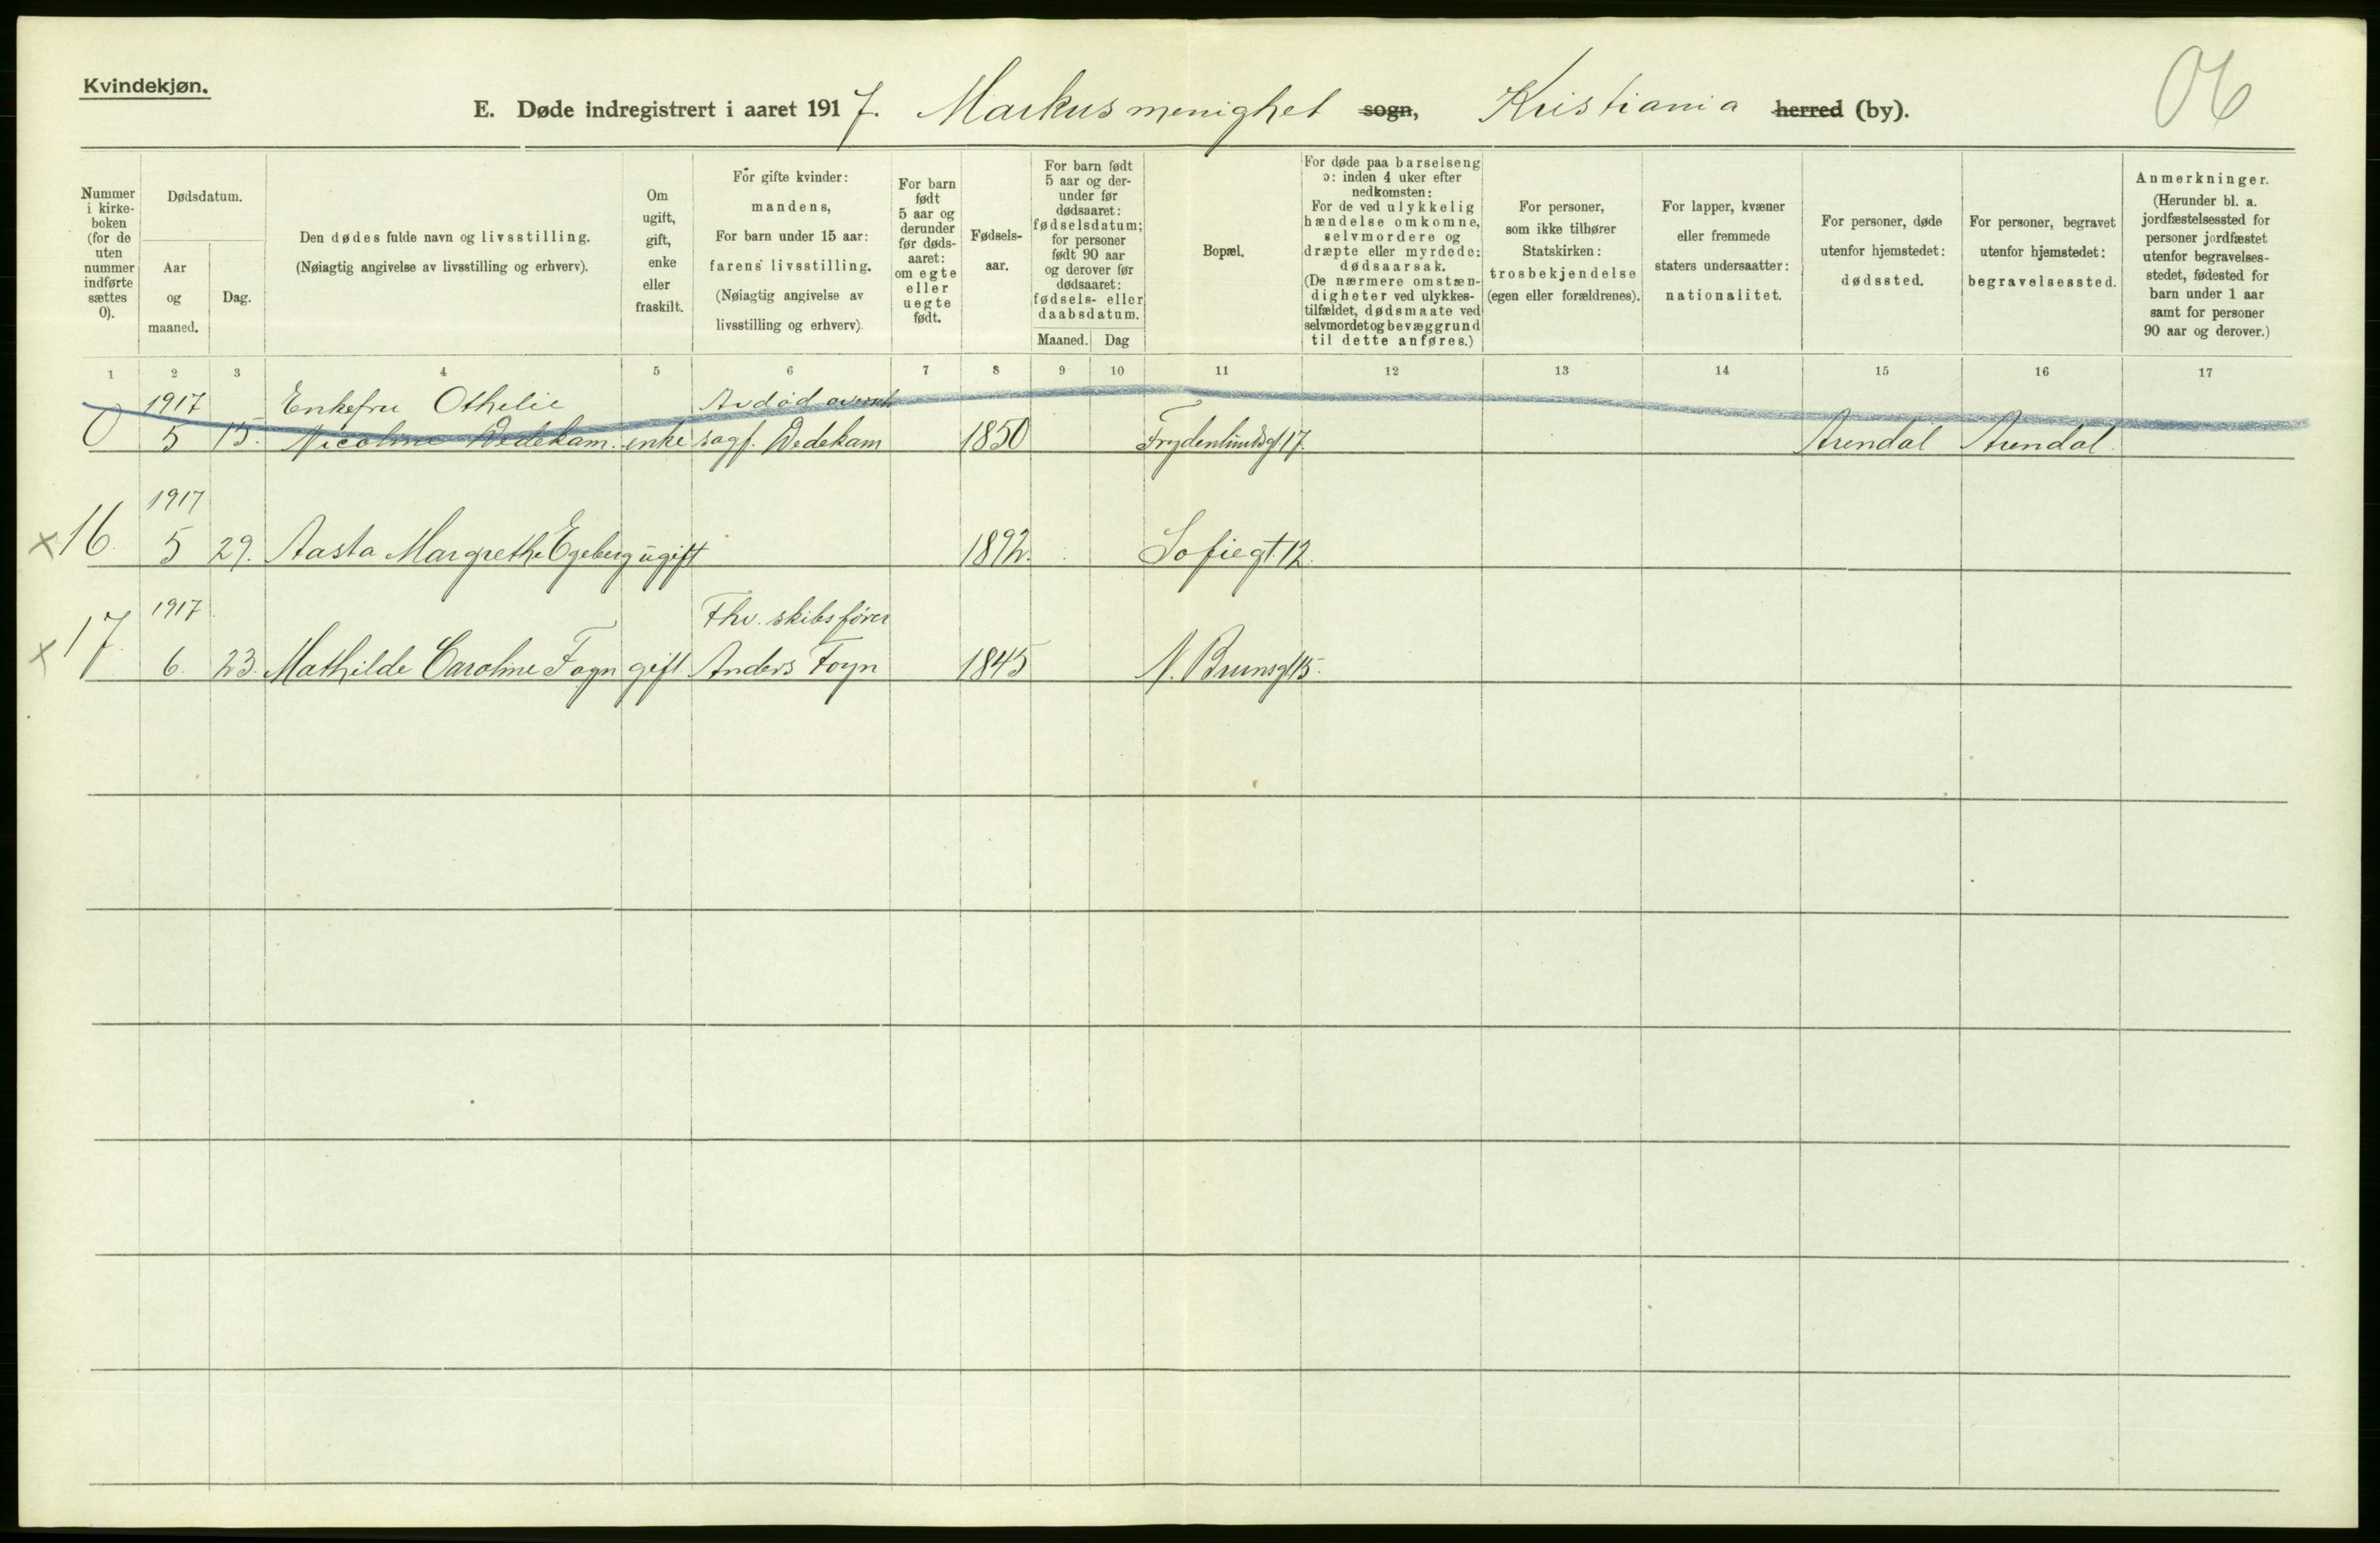 Kvindekjøn.
E. Døde indregistrert i aaret 1917. Markus menighet sogn, Kristiania herred (by).
06
Nummer i kirke-boken (for de uten nummer indførte sættes 0).
Dødsdatum.
Aar og maaned.
Dag.
Den dødes fulde navn og livsstilling.
(Nøiagtig angivelse av livsstilling og erhverv).
Om ugift, gift, enke eller fraskilt.
For gifte kvinder: mandens,
For barn under 15 aar: farens livsstilling.
(Nøiagtig angivelse av livsstilling og erhverv)
For barn født 5 aar og derunder før døds-aaret: om egte eller uegte født.
Fødsels-aar.
For barn født 5 aar og der-under før dødsaaret: fødselsdatum; for personer født 90 aar og derover før dødsaaret: fødsels- eller daabsdatum.
Maaned. Dag
Bopæl.
For døde paa barselseng ɔ: inden 4 uker efter nedkomsten:
For de ved ulykkelig hændelse omkomne, selvmordere og dræpte eller myrdede: dødsaarsak.
(De nærmere omstæn-digheter ved ulykkes-tilfældet, dødsmaate ved selvmordet og bevæggrund til dette anføres.)
For personer, som ikke tilhører Statskirken: trosbekjendelse (egen eller forældrenes).
For lapper, kvæner eller fremmede staters undersaatter: nationalitet.
For personer, døde utenfor hjemstedet: dødssted.
For personer, begravet utenfor hjemstedet: begravelsessted.
Anmerkninger.
(Herunder bl. a. jordfæstelsessted for personer jordfæstet utenfor begravelses-stedet, fødested for barn under 1 aar samt for personer 90 aar og derover.)
1 2 3 4 5 6 7 8 9 10 11 12 13 14 15 16 17
1917 Enkefru Othelie Avdød
0 5 15. Nicoline Wedekam. enke sagf. Wedekam 1850 Frydenlundsgt. 17. Arendal Arendal.
1917
x 16. 5 29. Aasta Margrethe Egeberg ugift 1892. Sofiegt. 12.
1917 Fhv. skibsfører
x 17. 6. 23. Mathilde Caroline Foyn gift. Anders Foyn 1845 N. Brunsgt 15.